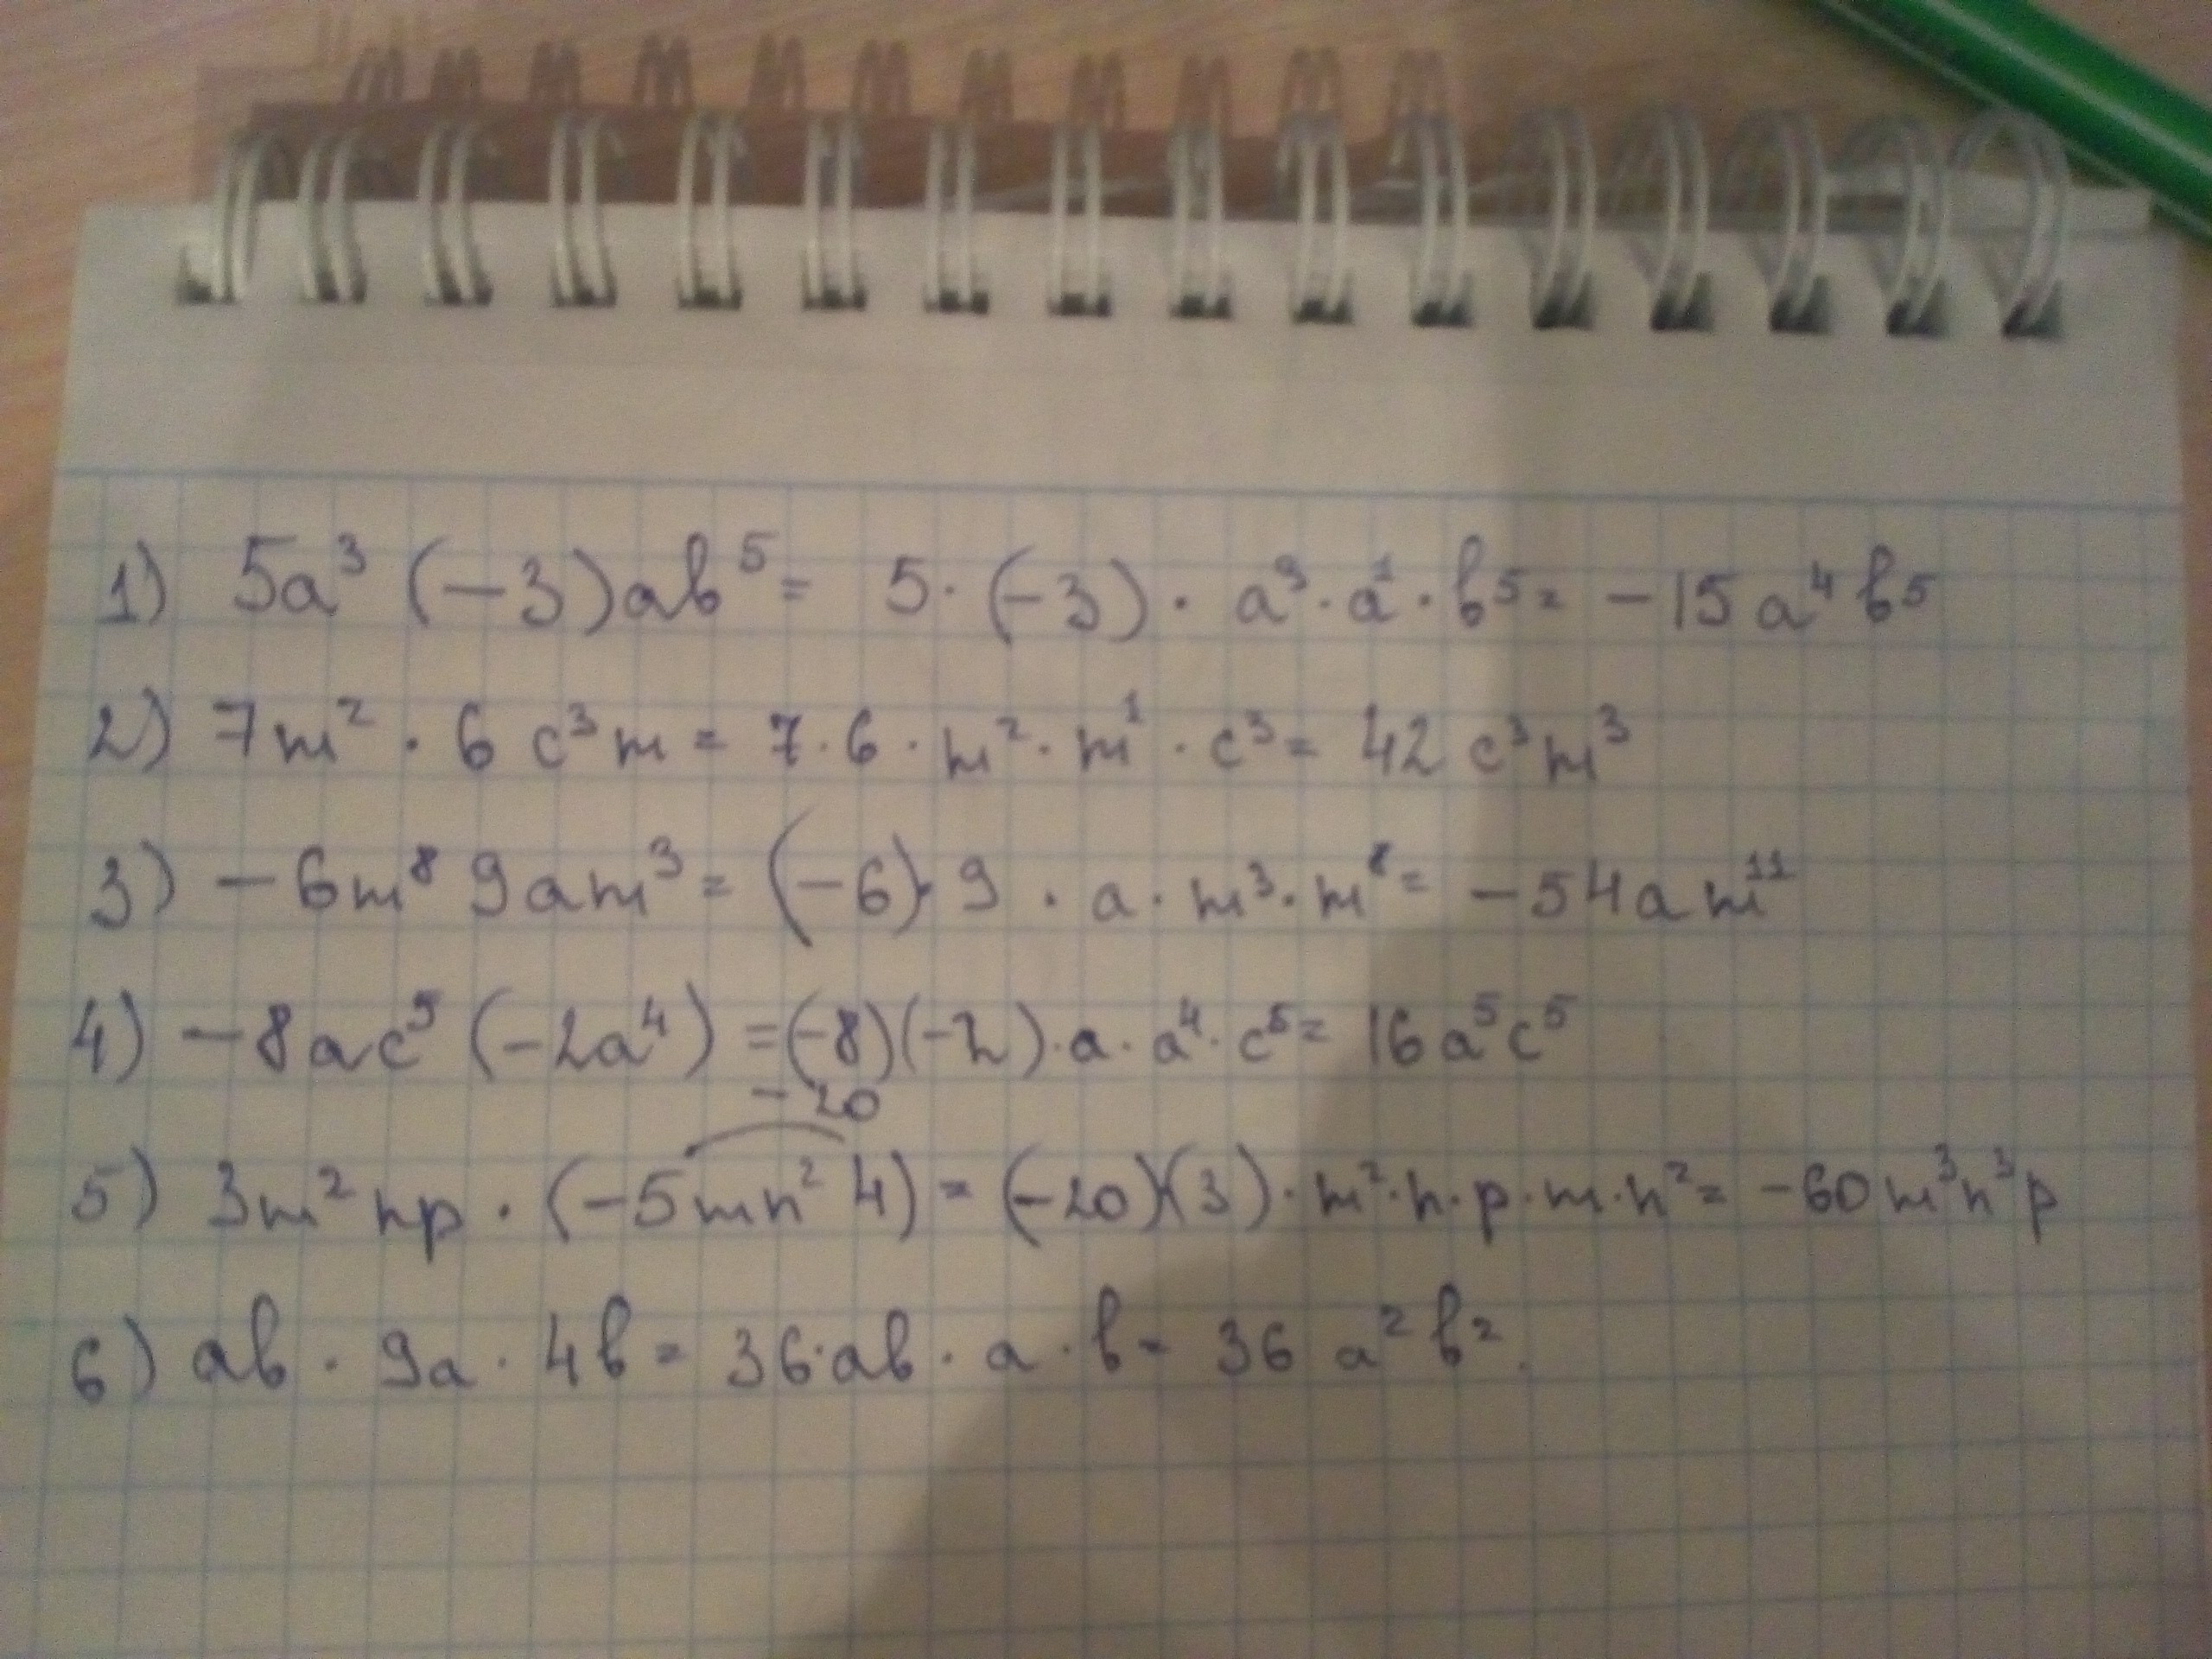 1) 5a³ (-3)ab⁵ = 5·(-3)·a³·a¹·b⁵= -15a⁴b⁵
2) 7m²·6c³m = 7·6·m²·m¹·c³= 42c³m³
3) -6m⁸ 9am³ = (-6)·9·a·m³·m⁸= -54am¹¹
4) -8ac⁵ (-2a⁴) =(-8)(-2)·a·a⁴·c⁵= 16a⁵c⁵
-20
5) 3m²np·(-5mn² 4) = (-20)(3)·m²·n·p·m·n²= -60m³n³p
6) ab·9a·4b = 36·ab·a·b= 36 a²b².